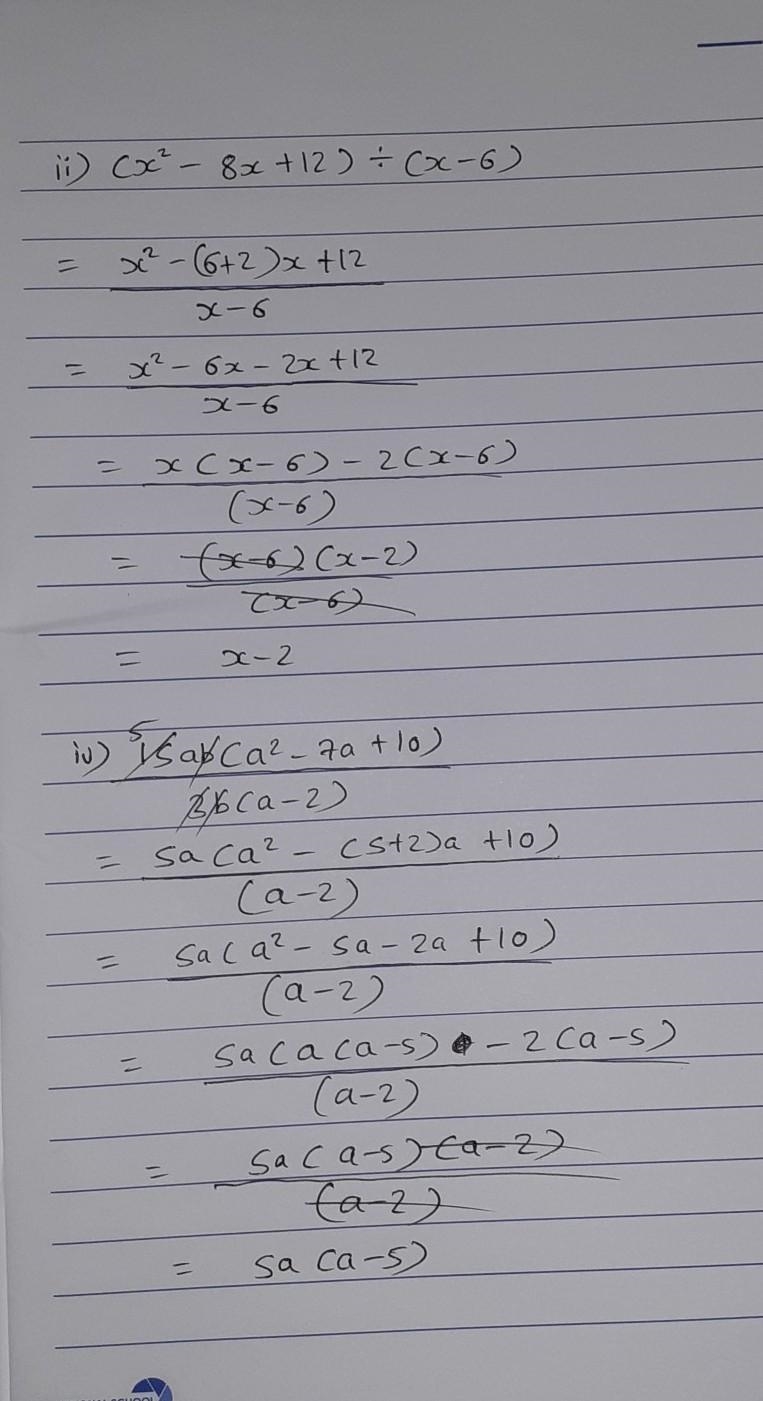 ii) (x² - 8x + 12) ÷ (x - 6)
= x² - (6+2)x + 12
x - 6
= x² - 6x - 2x + 12
x - 6
= x(x - 6) - 2(x - 6)
(x - 6)
= (x - 6)(x - 2)
(x - 6)
= x - 2
5
iv) 15ab(a² - 7a + 10)
3b(a - 2)
= 5a(a² - (5+2)a + 10)
(a - 2)
= 5a(a² - 5a - 2a + 10)
(a - 2)
= 5a(a(a - 5) - 2(a - 5)
(a - 2)
= 5a(a - 5)(a - 2)
(a - 2)
= 5a(a - 5)